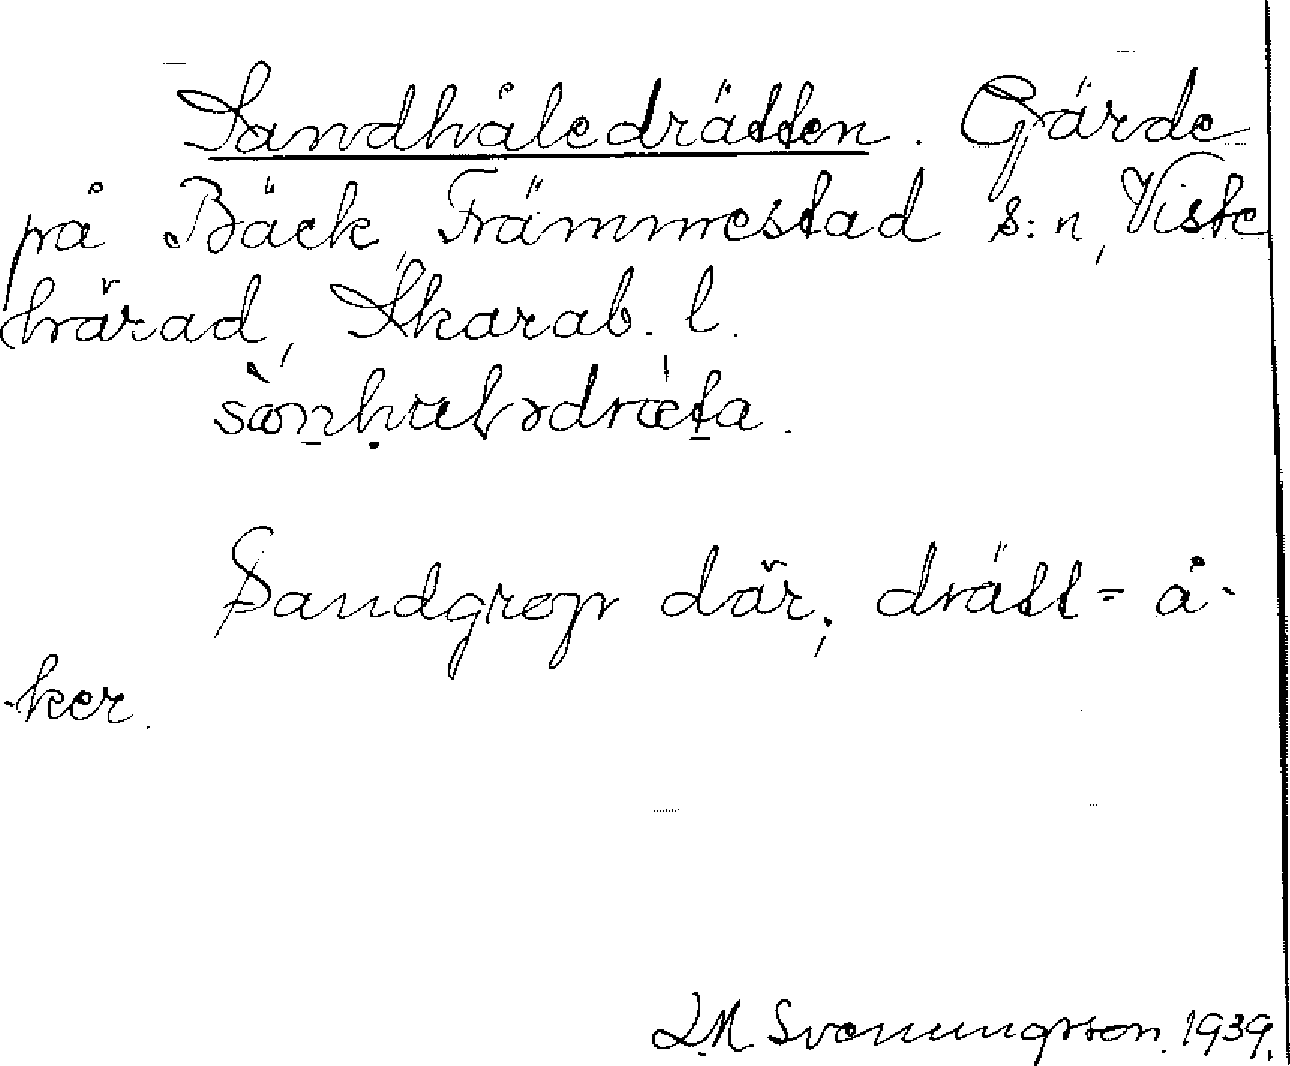 Sandhåledrätten. Gärde
på Bäck, Främmestad s:n, Viste
härad, Skarab. l.
Sandgrop där; drätt = å-
-ker.
S.M. Svenungsson. 1939.